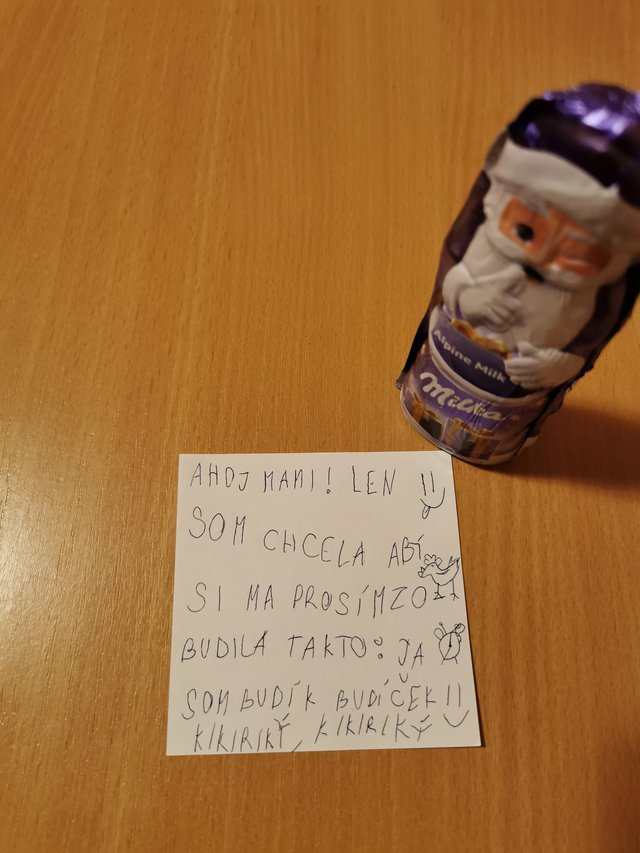 Alpine Milk
Milka
AHOJ MAMI! LEN
SOM CHCELA ABÍ
SI MA PROSÍMZO
BUDILA TAKTO: JA
SOM BUDÍK BUDÍČEK!!
KIKIRIKÝ, KIKIRIKÝ